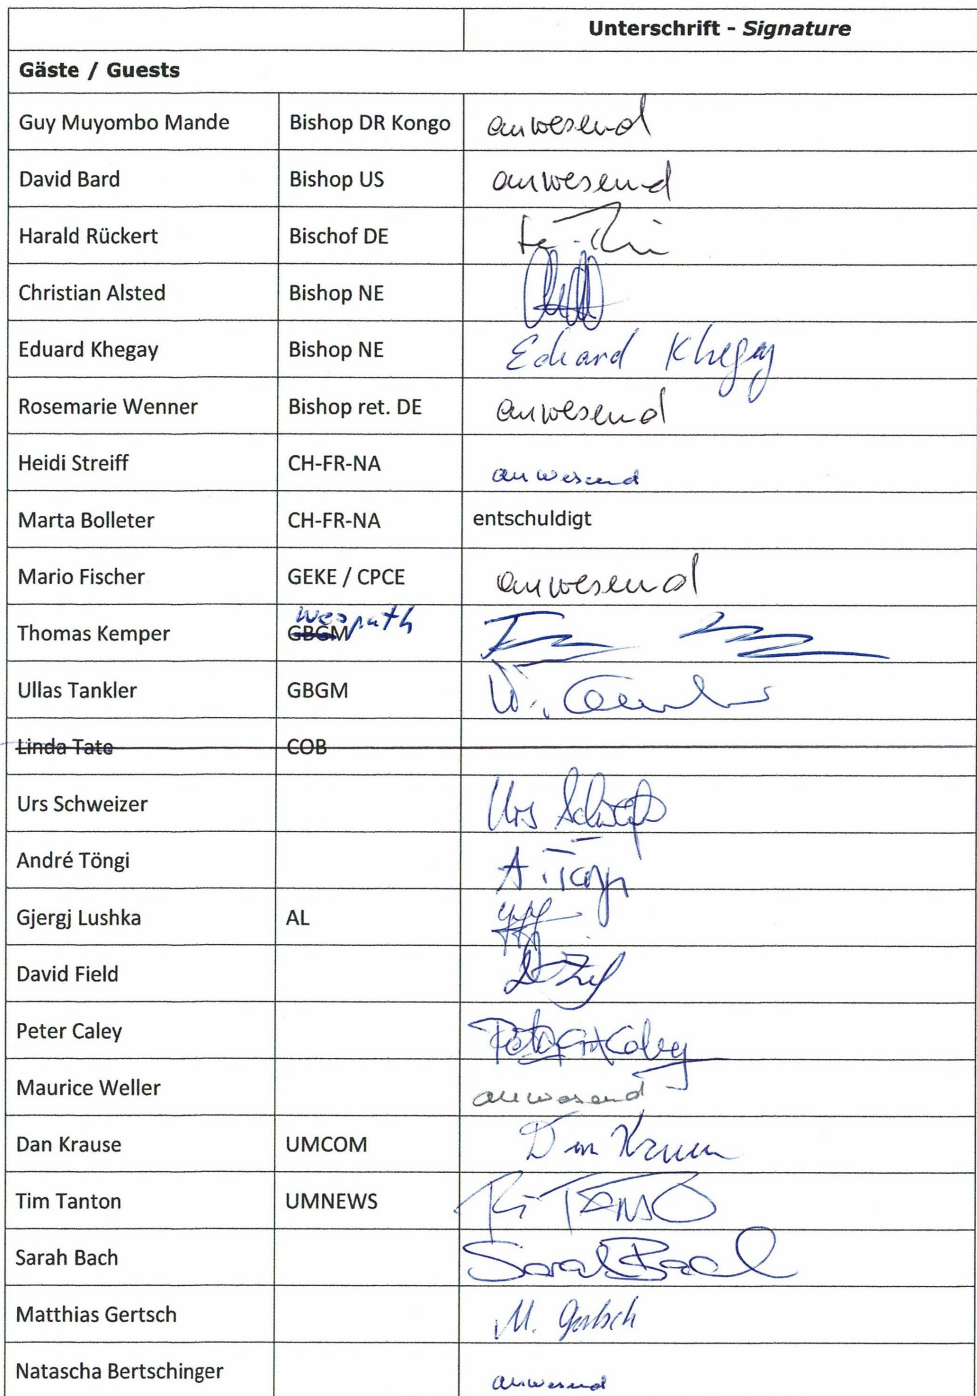 Unterschrift - Signature
Gäste / Guests
Guy Muyombo Mande Bishop DR Kongo anwesend
David Bard Bishop US anwesend
Harald Rückert Bischof DE
Christian Alsted Bishop NE
Eduard Khegay Bishop NE Eduard Khegay
Rosemarie Wenner Bishop ret. DE anwesend
Heidi Streiff CH-FR-NA anwesend
Marta Bolleter CH-FR-NA entschuldigt
Mario Fischer GEKE / CPCE anwesend
Thomas Kemper GBGM wespath
Ullas Tankler GBGM
Linda Tate COB
Urs Schweizer Urs
André Töngi
Gjergj Lushka AL
David Field
Peter Caley
Maurice Weller anwesend
Dan Krause UMCOM
Tim Tanton UMNEWS
Sarah Bach Sarah Bach
Matthias Gertsch M. Gertsch
Natascha Bertschinger anwesend